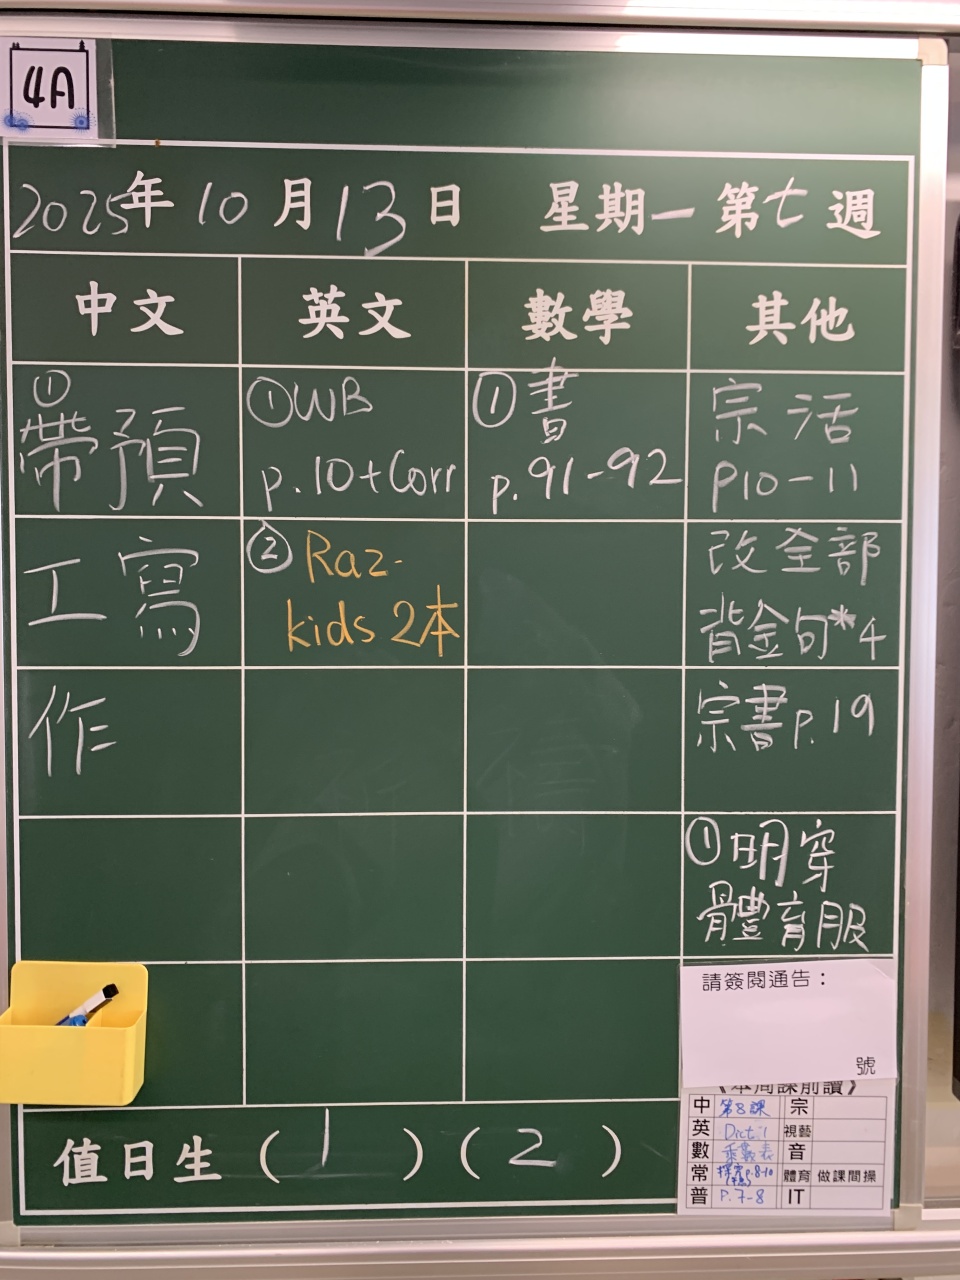 4A
2025年10月13日 星期一 第七週
中文 英文 數學 其他
①帶預
工寫
作
①WB
p.10+Corr
②Raz-
kids 2本
①書
p.91-92
宗活
P10-11
改全部
背金句*4
宗書p.19
①明穿
體育服
請簽閱通告：
號
《本周課前讀》
中 第8課 宗
英 Dict.1 視藝
數 乘數表 音
常 p.8-10 體育 做課間操
普 P.7-8 IT
值日生 (1) (2)